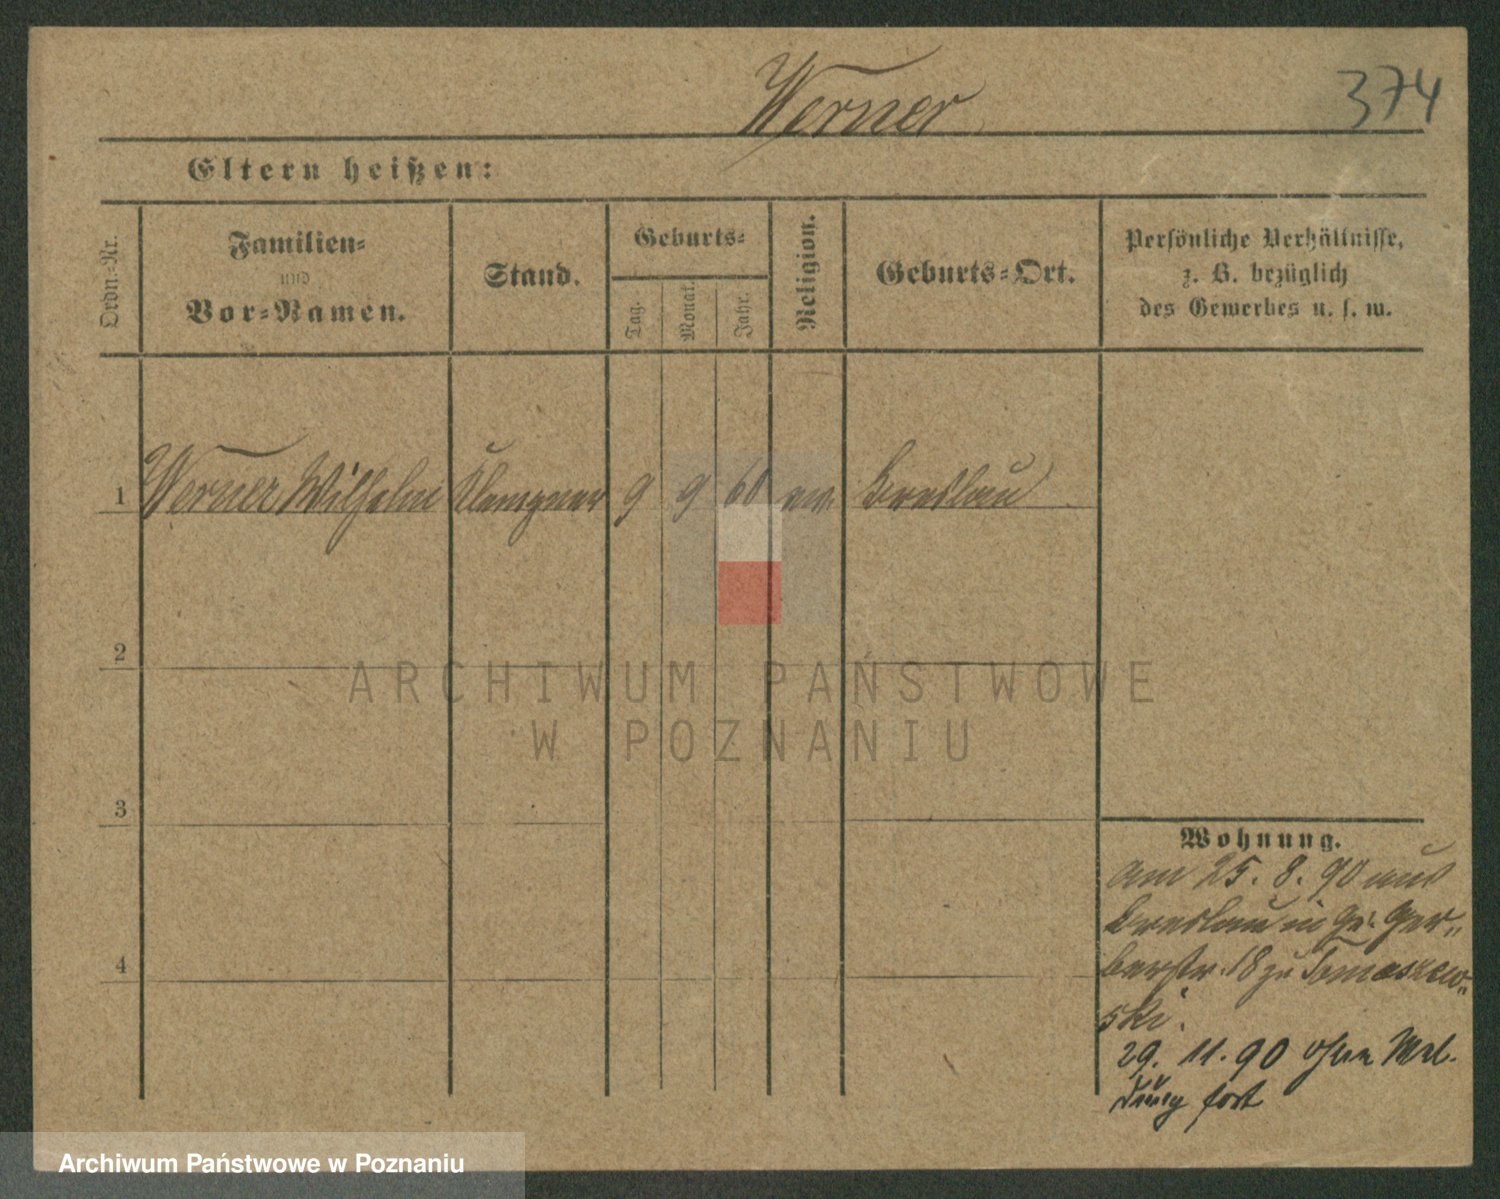 Werner
374
Eltern heißen:
Ordn.-Nr.
Familien-
und
Vor-Namen.
Stand.
Geburts-
Tag.
Monat.
Jahr.
Religion.
Geburts-Ort.
Persönliche Verhältnisse,
z. B. bezüglich
des Gewerbes u. s. w.
1 Werner Wilhelm Klempner 9 9 60 ev. Breslau
2
3
4
Wohnung.
am 25. 8. 90 aus
Breslau in Gr. Ger-
berstr. 18 zu Tomaszew-
ski.
29. 11. 90 ohne Mel-
dung fort
ARCHIWUM PAŃSTWOWE
W POZNANIU
Archiwum Państwowe w Poznaniu